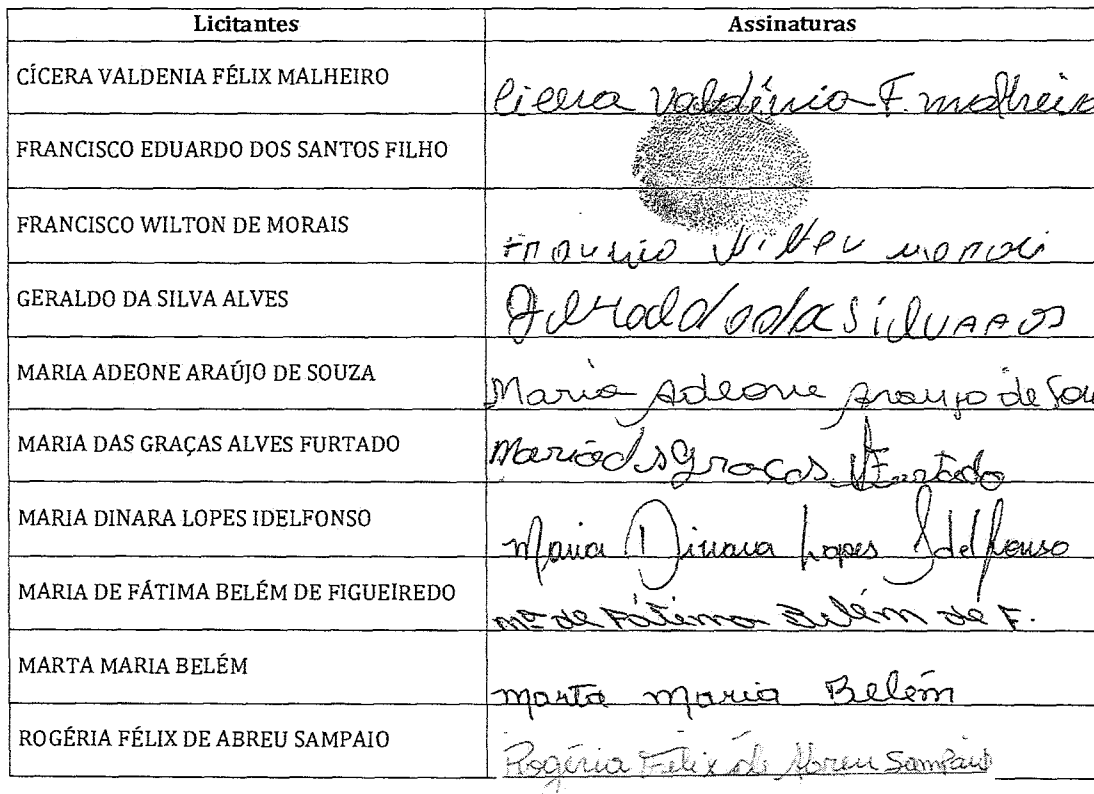 Licitantes Assinaturas
CÍCERA VALDENIA FÉLIX MALHEIRO Cicera Valdênia F. malheiro
FRANCISCO EDUARDO DOS SANTOS FILHO
FRANCISCO WILTON DE MORAIS
GERALDO DA SILVA ALVES
MARIA ADEONE ARAÚJO DE SOUZA Maria Adeone Araujo de Sou
MARIA DAS GRAÇAS ALVES FURTADO Furtado
MARIA DINARA LOPES IDELFONSO Maria Dinara Lopes Idelfonso
MARIA DE FÁTIMA BELÉM DE FIGUEIREDO Mª de Fátima Belém de F.
MARTA MARIA BELÉM Marta Maria Belém
ROGÉRIA FÉLIX DE ABREU SAMPAIO Rogéria Felix de Abreu Sampaio